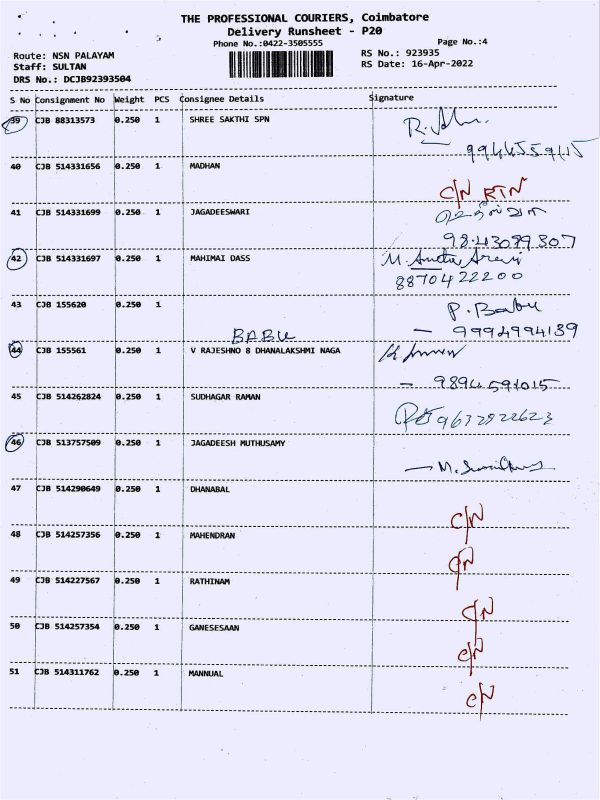 THE PROFESSIONAL COURIERS, Coimbatore
Delivery Runsheet - P20
Phone No.:0422-3505555
Page No.:4
Route: NSN PALAYAM
RS No.: 923935
Staff: SULTAN
RS Date: 16-Apr-2022
DRS No.: DCJB92393504
S No Consignment No Weight PCS Consignee Details Signature
39 CJB 88313573 0.250 1 SHREE SAKTHI SPN
9944559115
40 CJB 514331656 0.250 1 MADHAN
C/N RTN
41 CJB 514331699 0.250 1 JAGADEESWARI
9843079307
42 CJB 514331697 0.250 1 MAHIMAI DASS
8870422200
43 CJB 155620 0.250 1 P. Babu
BABU - 9994994139
44 CJB 155561 0.250 1 V RAJESHNO 8 DHANALAKSHMI NAGA
- 9894591015
45 CJB 514262824 0.250 1 SUDHAGAR RAMAN
9632822623
46 CJB 513757509 0.250 1 JAGADEESH MUTHUSAMY
47 CJB 514290649 0.250 1 DHANABAL
C/N
48 CJB 514257356 0.250 1 MAHENDRAN
C/N
49 CJB 514227567 0.250 1 RATHINAM
C/N
50 CJB 514257354 0.250 1 GANESESAAN
C/N
51 CJB 514311762 0.250 1 MANNUAL
C/N